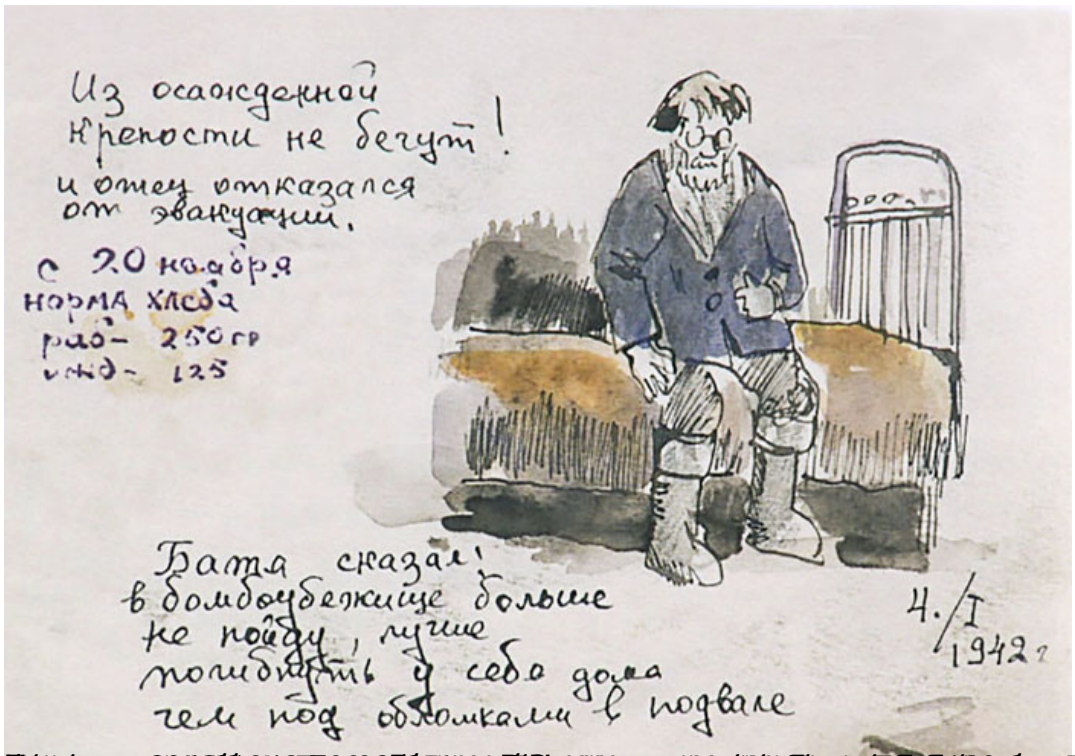 Из осажденной
крепости не бегут!
и отец отказался
от эвакуации.
с 20 ноября
норма хлеба
раб- 250 гр
ижд- 125
Батя сказал:
в бомбоубежище больше
не пойду, лучше
погибнуть у себя дома
чем под обломками в подвале
4./I
1942г